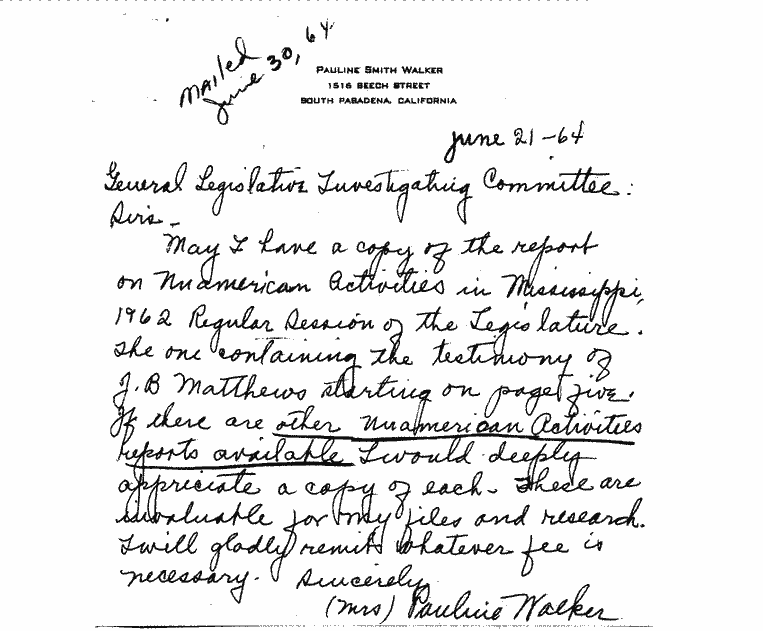 Mailed
June 30, 64
PAULINE SMITH WALKER
1516 BEECH STREET
SOUTH PASADENA, CALIFORNIA
June 21-64
General Legislative Investigating Committee:
Sirs-
May I have a copy of the report
on Unamerican Activities in Mississippi,
1962 Regular Session of the Legislature.
The one containing the testimony of
J.B Matthews starting on page five.
If there are other Unamerican Activities
reports available I would deeply
appreciate a copy of each. These are
invaluable for my files and research.
I will gladly remit whatever fee is
necessary. Sincerely
(Mrs) Pauline Walker